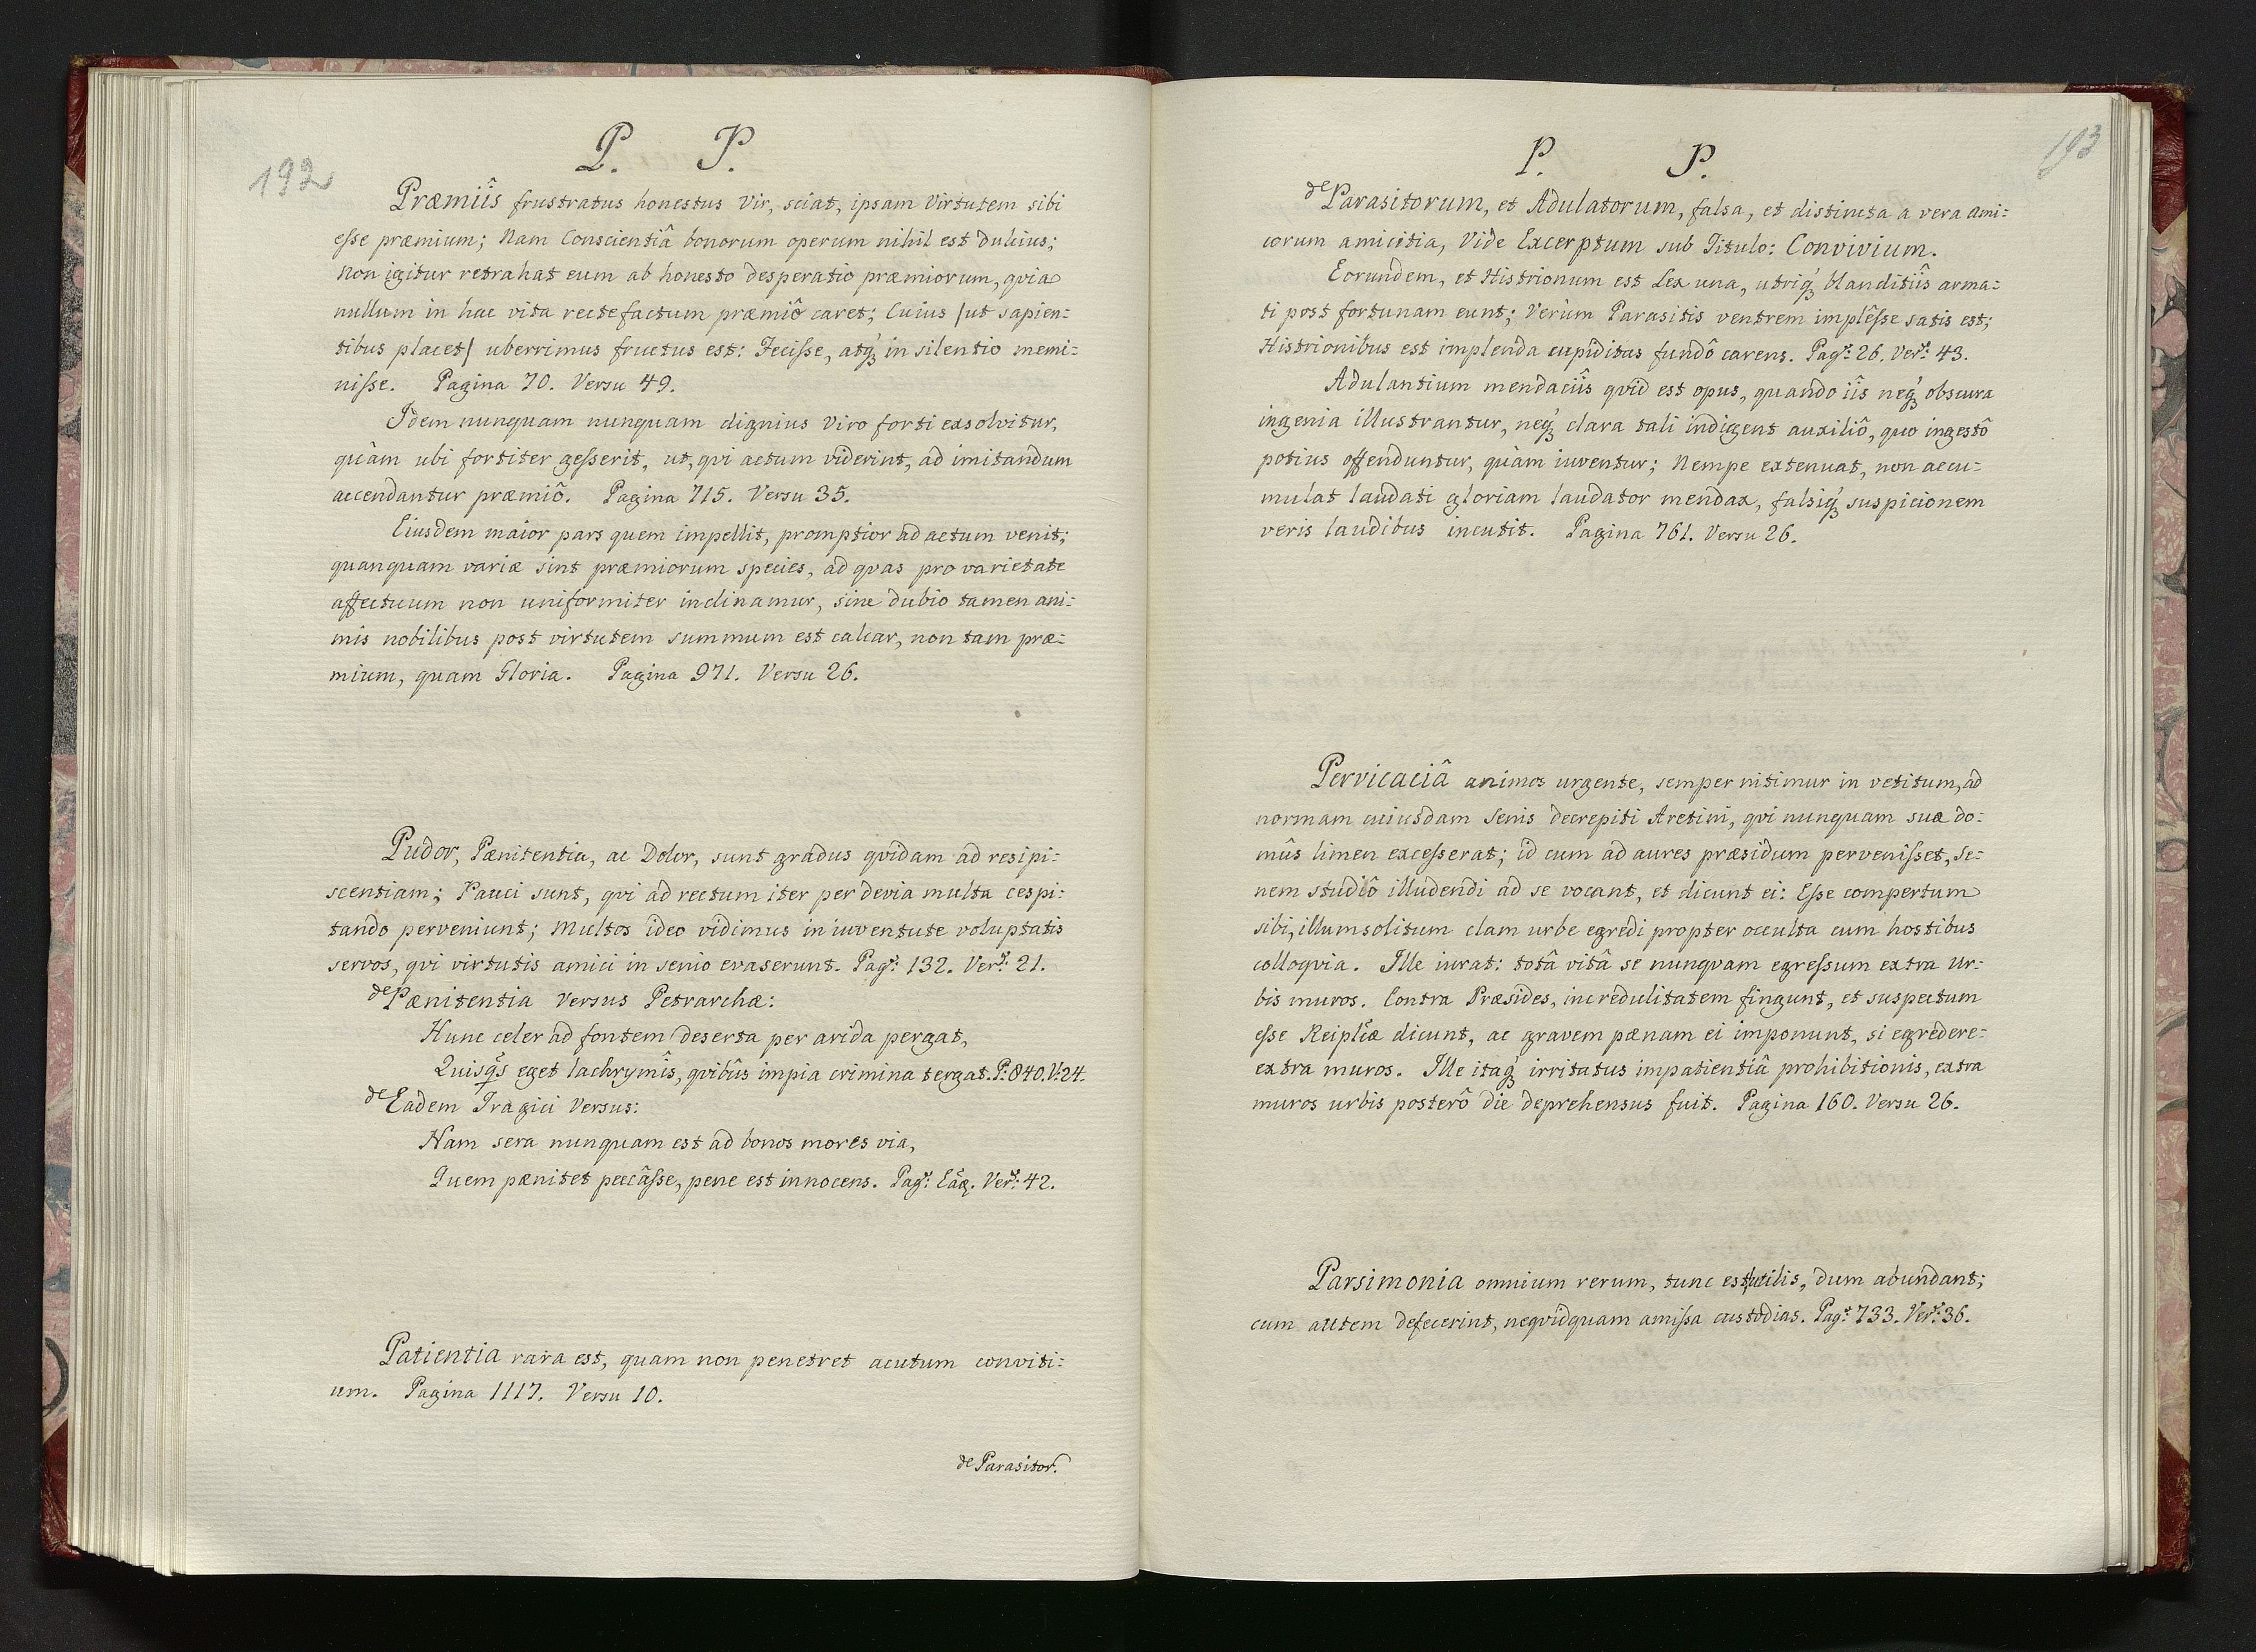 192
P. P.
Præmiîs frustratus honestus Vir, sciat, ipsam Virtutem sibi
eſse præmium; Nam Conscientiâ bonorum operum nihil est dulcius;
Non igitur retrahat eum ab honesto desperatio præmiorum, qvia
nullum in hac vita rectefactum præmiô caret; Cuius /ut sapien:
tibus placet/ uberrimus fructus est: Feciſse, atq́ꝫ in silentio memi:
niſse. Pagina 70. Versu 49.
Idem nunquam nunquam dignius Viro forti exsolvitur,
quàm ubi fortiter geſserit, ut, qvi actum viderint, ad imitandum
accendantur præmiô. Pagina 715. Versu 35.
Eiusdem maior pars quem impellit, promptior ad actum venit;
quanquam variæ sint præmiorum species, ad qvas pro varietate
affectuum non uniformiter inclinamur, sine dubio tamen ani:
mis nobilibus post virtutem summum est calcar, non tam præ:
mium, quam Gloria. Pagina 971. Versu 26.
Pudor, Pænitentia, ac Dolor, sunt gradus qvidam ad resipi:
scentiam; Pauci sunt, qvi ad rectum iter per devia multa cespi:
tando perveniunt; Multos ideo vidimus in iuventute voluptatis
servos, qvi virtutis amici in senio evaserunt. Pagᵃ: 132. Verˢ: 21.
de Pænitentia Versus Petrarchæ:
Hunc celer ad fontem deserta per arida pergat,
Quisq́s eget lachrymîs, qvibûs impia crimina tergat. P: 840. V: 24.
de Eadem Tragici Versus:
Nam sera nunquam est ad bonos mores via,
Quem pænitet peccâſse, pene est innocens. Pagᵃ: Eâq. Verˢ: 42.
Patientia rara est, quam non penetret acutum conviti:
um. Pagina 1117. Versu 10.
de Parasitor.
193
P. P.
de Parasitorum, et Adulatorum, falsa, et distincta a vera ami:
corum amicitia, Vide Excerptum sub Titulo: Convivium.
Eorundem, et Histrionum est Lex una, utriq́ꝫ blanditiîs arma:
ti post fortunam eunt; Verùm Parasitis ventrem implêſse satis est;
Histrionibus est implenda cupiditas fundô carens. Pagᵃ: 26. Verˢ: 43.
Adulantium mendaciîs qvid est opus, quando iîs neq́ꝫ obscura
ingenia illustrantur, neq́ꝫ clara tali indigent auxiliô, quo ingestô
potius offenduntur, quàm iuventur; Nempe extenuat, non accu:
mulat laudati gloriam laudator mendax, falsiq́ꝫ suspicionem
veris laudibus incutit. Pagina 761. Versu 26.
Pervicaciâ animos urgente, semper nitimur in vetitum, ad
normam cuiusdam Senis decrepiti Aretini, qvi nunquam suæ do:
mûs limen exceſserat; id cum ad aures præsidum perveniſset, se:
nem studiô illudendi ad se vocant, et dicunt ei: Eſse compertum
sibi, illum solitum clam urbe egredi propter occulta cum hostibus
colloqvia. Ille iurat: totâ vitâ se nunqvam egreſsum extra Ur:
bis muros. Contra Præsides, incredulitatem fingunt, et suspectum
eſse Reiplĉæ dicunt, ac gravem pænam ei imponunt, si egredere:
extra muros. Ille itaq́ꝫ irritatus impatientiâ prohibitionis, extra
muros urbis posterô die deprehensus fuit. Pagina 160. Versu 26.
Parsimonia omnium rerum, tunc est utilis, dum abundant;
cum autem defecerint, neqvidquam amiſsa custodias. Pagᵃ: 733. Verˢ: 36.